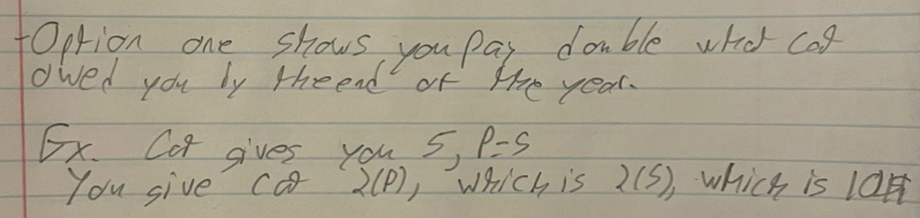 -Option one shows you pay double what cat
owed you by the end of the year.
Ex. Cat gives you 5, P=5
You give cat 2(P), which is 2(5), which is 10